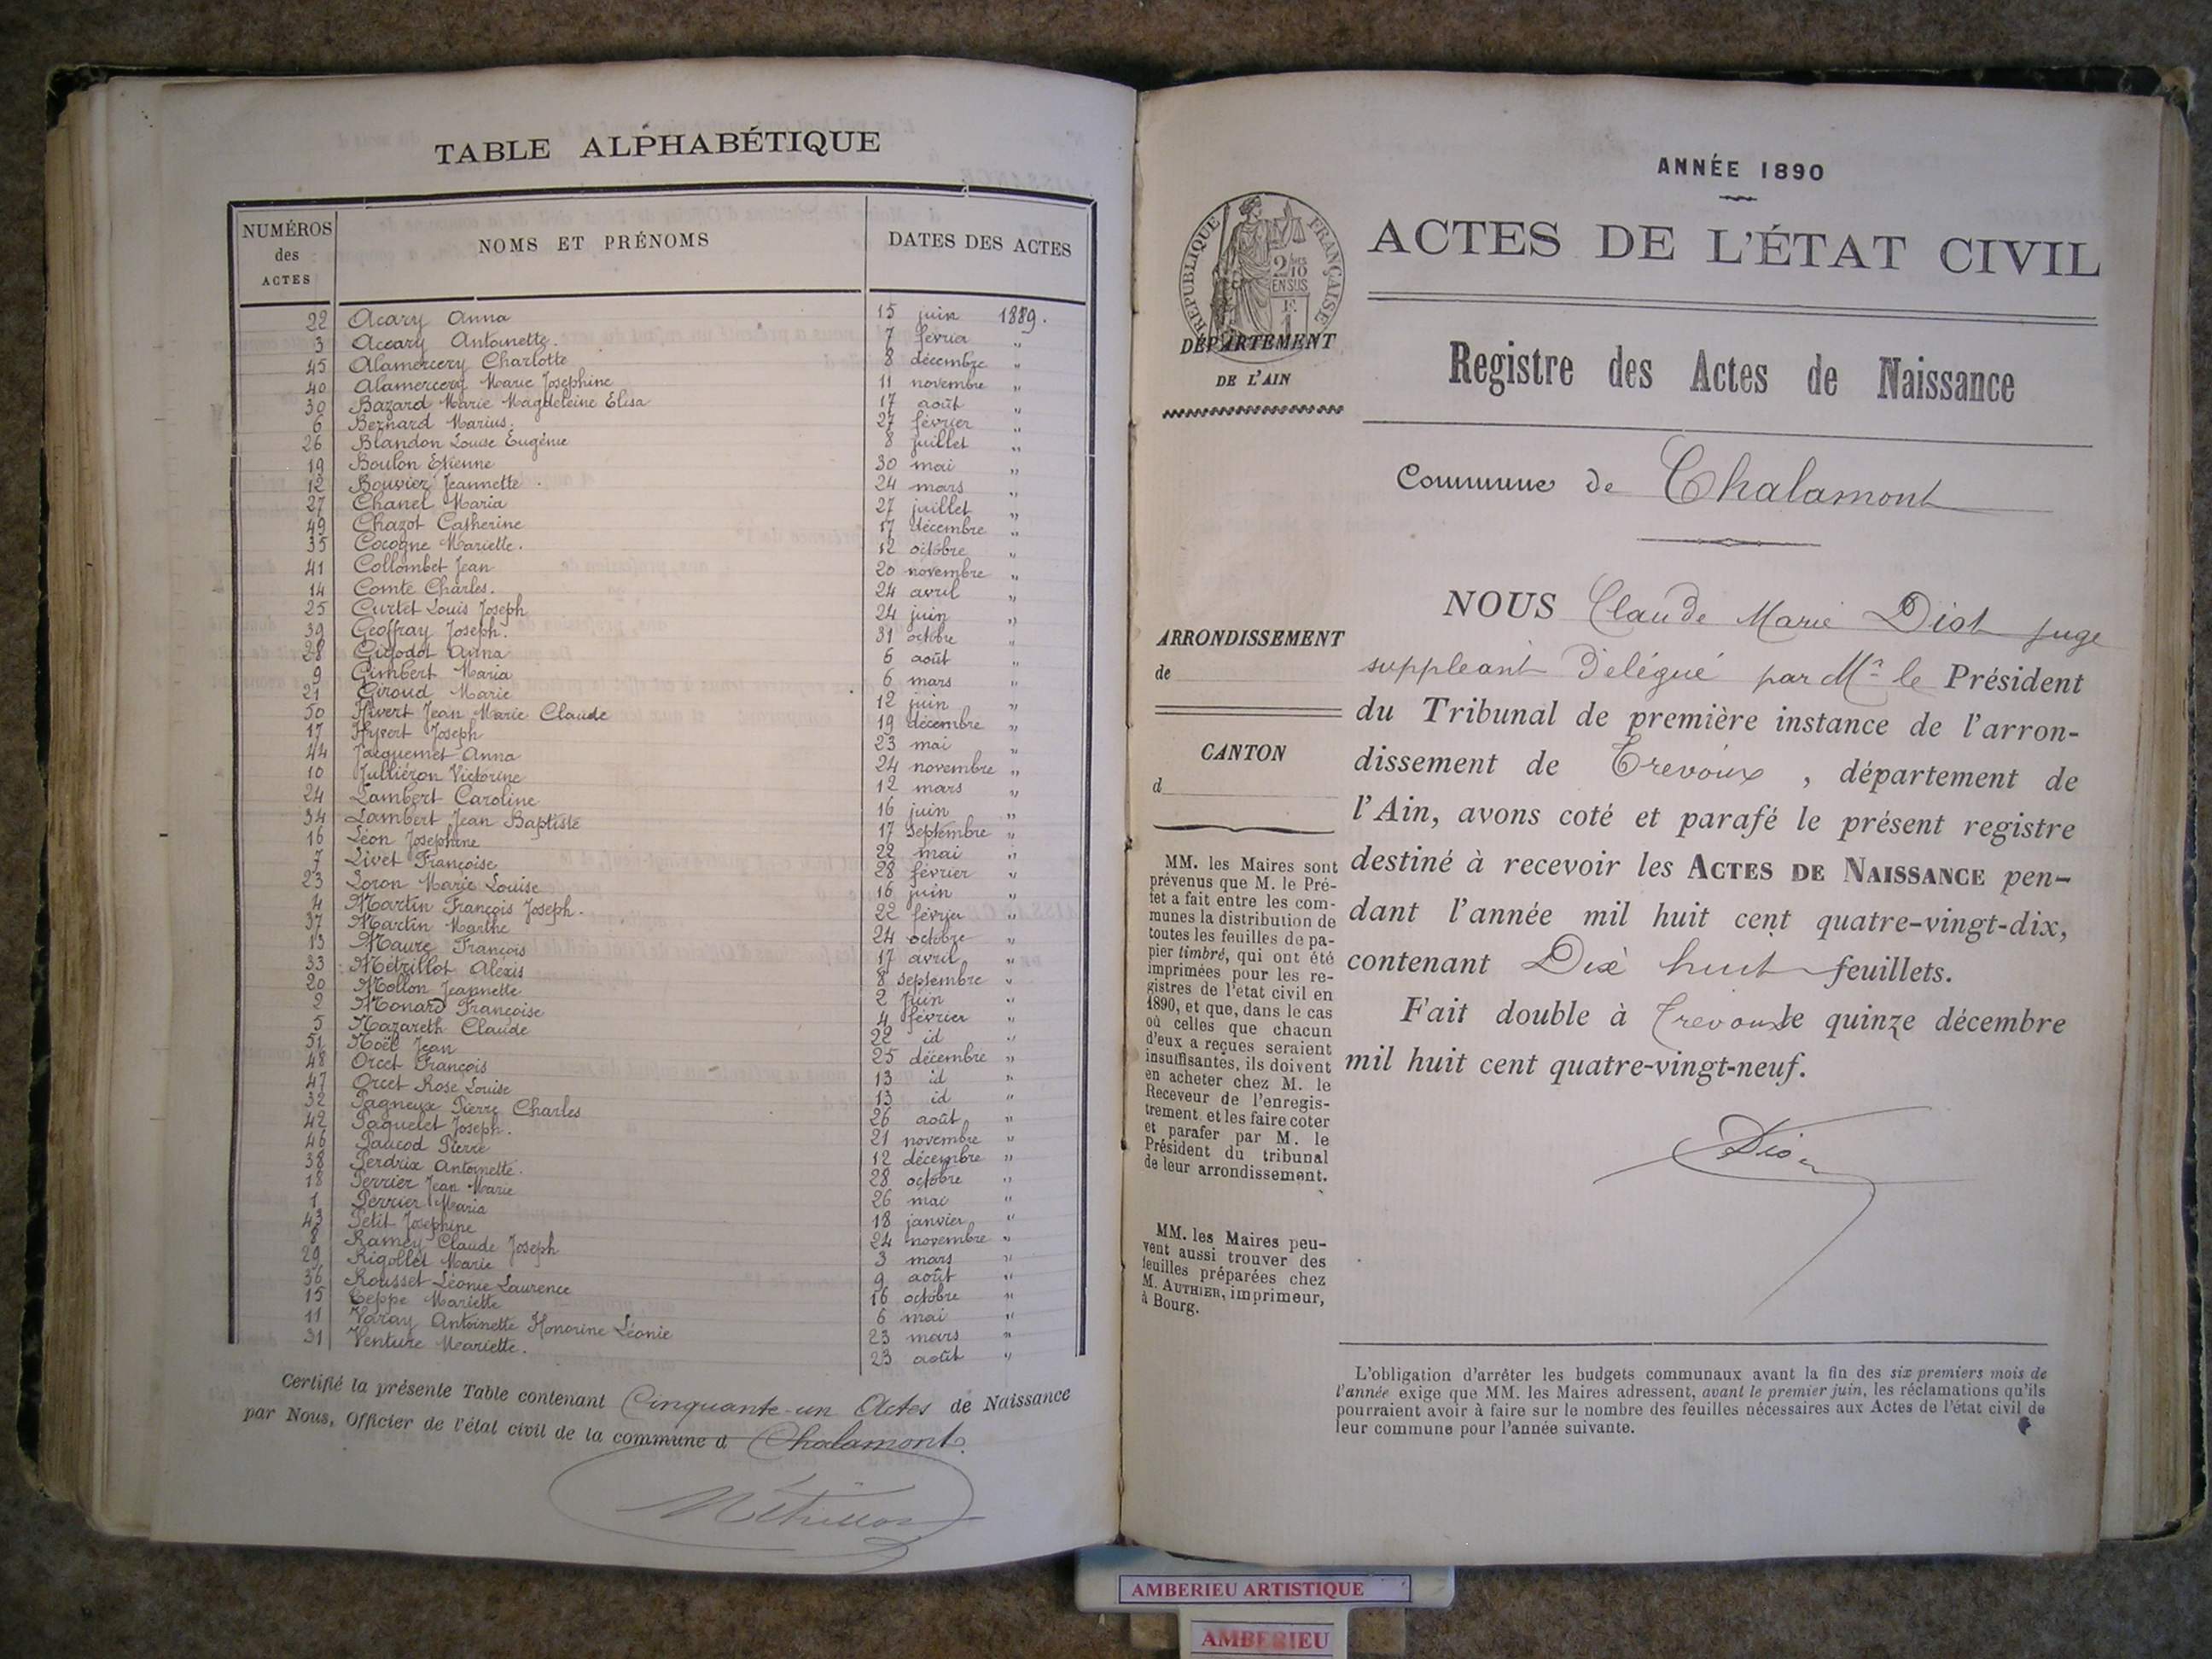 TABLE ALPHABÉTIQUE
NUMÉROS des ACTES
NOMS ET PRÉNOMS
DATES DES ACTES
22 Acary Anna 15 juin 1889.
3 Accary Antoinette. 7 février "
45 Alamercery Charlotte 8 décembre "
40 Alamercery Marie Josephine 11 novembre "
30 Bazard Marie Magdeleine Elisa 17 août "
6 Bernard Marius. 27 février "
26 Blandon Louise Eugénie 8 juillet "
19 Boulon Etienne 30 mai "
12 Bouvier Jeannette. 24 mars "
27 Chanel Maria 27 juillet "
49 Chazot Catherine 17 décembre "
35 Cocogne Mariette. 12 octobre "
41 Collombet Jean 20 novembre "
14 Comte Charles. 24 avril "
25 Curtet Louis Joseph 24 juin "
39 Geoffray Joseph. 31 octobre "
28 Gigodot Anna 6 août "
9 Gimbert Maria 6 mars "
21 Giroud Marie 12 juin "
50 Hivert Jean Marie Claude 19 décembre "
17 Hyvert Joseph 23 mai "
44 Jacquemet Anna 24 novembre "
10 Julliéron Victorine 12 mars "
24 Lambert Caroline 16 juin "
34 Lambert Jean Baptiste 17 septembre "
16 Léon Josephine 22 mai "
7 Livet Françoise 28 février "
23 Loron Marie Louise 16 juin "
4 Martin François Joseph. 22 février "
37 Martin Marthe 24 octobre "
13 Maure François 17 avril "
33 Métrillot Alexis 8 septembre "
20 Mollon Jeannette 2 Juin "
2 Monard Françoise 4 février "
5 Nazareth Claude 22 id "
51 Noël Jean 25 décembre "
48 Orcet François 13 id "
47 Orcet Rose Louise 13 id "
32 Pagneux Pierre Charles 26 août "
42 Paquelet Joseph. 21 novembre "
46 Paucod Pierre 12 décembre "
38 Perdrix Antoinette. 28 octobre "
18 Perrier Jean Marie 26 mai "
1 Perrier Maria 18 janvier "
43 Petit Josephine 24 novembre "
8 Ramey Claude Joseph 3 mars "
29 Rigollet Marie 9 août "
36 Rousset Léonie Laurence 16 octobre "
15 Teppe Mariette 6 mai "
11 Varay Antoinette Honorine Léonie 23 mars "
31 Venture Mariette. 23 août "
Certifié la présente Table contenant Cinquante-un Actes de Naissance
par Nous, Officier de l'état civil de la commune d Chalamont.
Métrillot
ANNÉE 1890
ACTES DE L'ÉTAT CIVIL
RÉPUBLIQUE FRANÇAISE
2/10 EN SUS
DÉPARTEMENT
DE L'AIN
Registre des Actes de Naissance
Commune de Chalamont
ARRONDISSEMENT
de
CANTON
d
MM. les Maires sont
prévenus que M. le Pré-
fet a fait entre les com-
munes la distribution de
toutes les feuilles de pa-
pier timbré, qui ont été
imprimées pour les re-
gistres de l'état civil en
1890, et que, dans le cas
où celles que chacun
d'eux a reçues seraient
insuffisantes, ils doivent
en acheter chez M. le
Receveur de l'enregis-
trement et les faire coter
et parafer par M. le
Président du tribunal
de leur arrondissement.
MM. les Maires peu-
vent aussi trouver des
feuilles préparées chez
M. AUTHIER, imprimeur,
à Bourg.
NOUS Claude Marie Diot juge
suppleant Délégué par Mr le Président
du Tribunal de première instance de l'arron-
dissement de Trevoux, département de
l'Ain, avons coté et parafé le présent registre
destiné à recevoir les ACTES DE NAISSANCE pen-
dant l'année mil huit cent quatre-vingt-dix,
contenant Dix huit feuillets.
Fait double à Trevoux le quinze décembre
mil huit cent quatre-vingt-neuf.
Diot
L'obligation d'arrêter les budgets communaux avant la fin des six premiers mois de
l'année exige que MM. les Maires adressent, avant le premier juin, les réclamations qu'ils
pourraient avoir à faire sur le nombre des feuilles nécessaires aux Actes de l'état civil de
leur commune pour l'année suivante.
AMBERIEU ARTISTIQUE
AMBERIEU